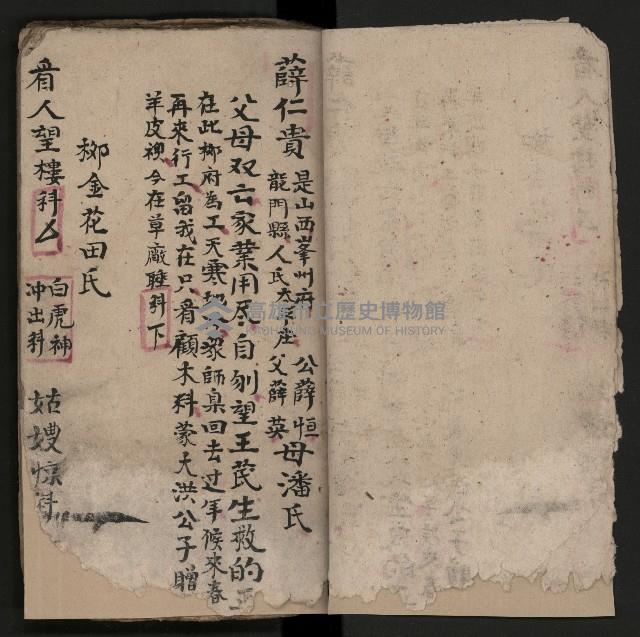 薛仁貴 是山西峯州府 公薛恒 母潘氏
龍門縣人氏 庄 父薛英
父母双亡家業用尽自刎望王茂生救的
在此柳府為工天寒地 眾師臬回去过年候來春
再來行工留我在只看顧木料蒙大洪公子贈
羊皮袄今在草廠睡科下
柳金花田氏
白虎神
冲出科
看人望樓科 姑嫂惊科
高雄市立歷史博物館
KAOHSIUNG MUSEUM OF HISTORY